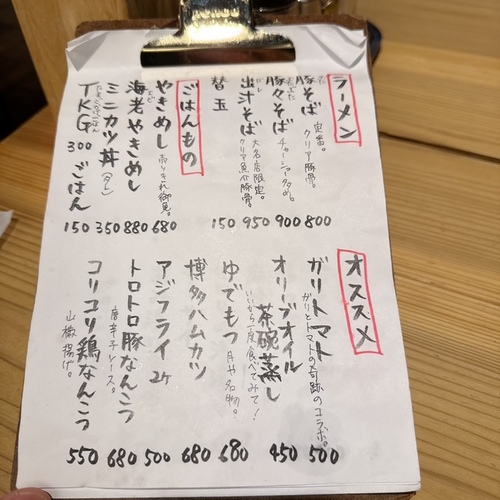 ラーメン
豚そば 定番。クリア豚骨。 800
豚々そば チャーシュー多め。 900
出汁そば 大名店限定。クリア魚介豚骨。 950
替玉 150
ごはんもの
やきめし 売りきれ御免。 680
海老やきめし 880
ミニカツ丼(タレ) 350
TKG 300 ごはん 150
オススメ
ガリトマト ガリとトマトの奇跡のコラボ。 500
オリーブオイル茶碗蒸し いいから一度食べてみて! 450
ゆでもつ 月や名物。 680
博多ハムカツ 680
アジフライ 2ケ 500
トロトロ豚なんこつ 唐辛子ソース。 680
コリコリ鶏なんこつ 山椒揚げ。 550